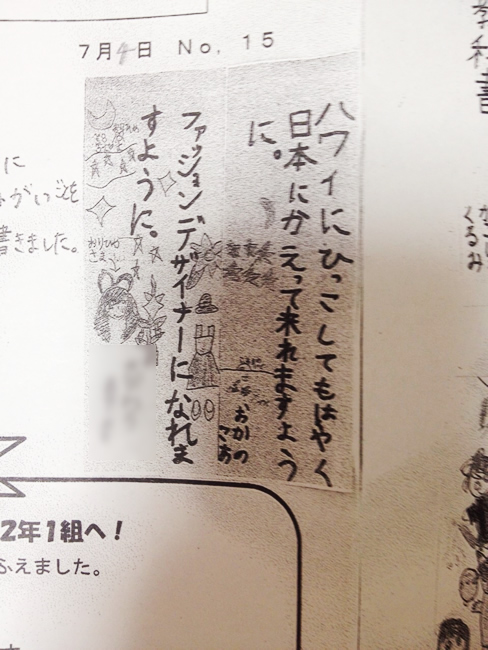 7月4日 No. 15
ハワイにひっこしてもはやく
日本にかえって来れますよう
に。
おかの
こあ
ファッションデザイナーになれま
すように。
おりひめ
さま
に
がいごとを
書きました。
2年1組へ！
ふえました。
教科書
くるみ